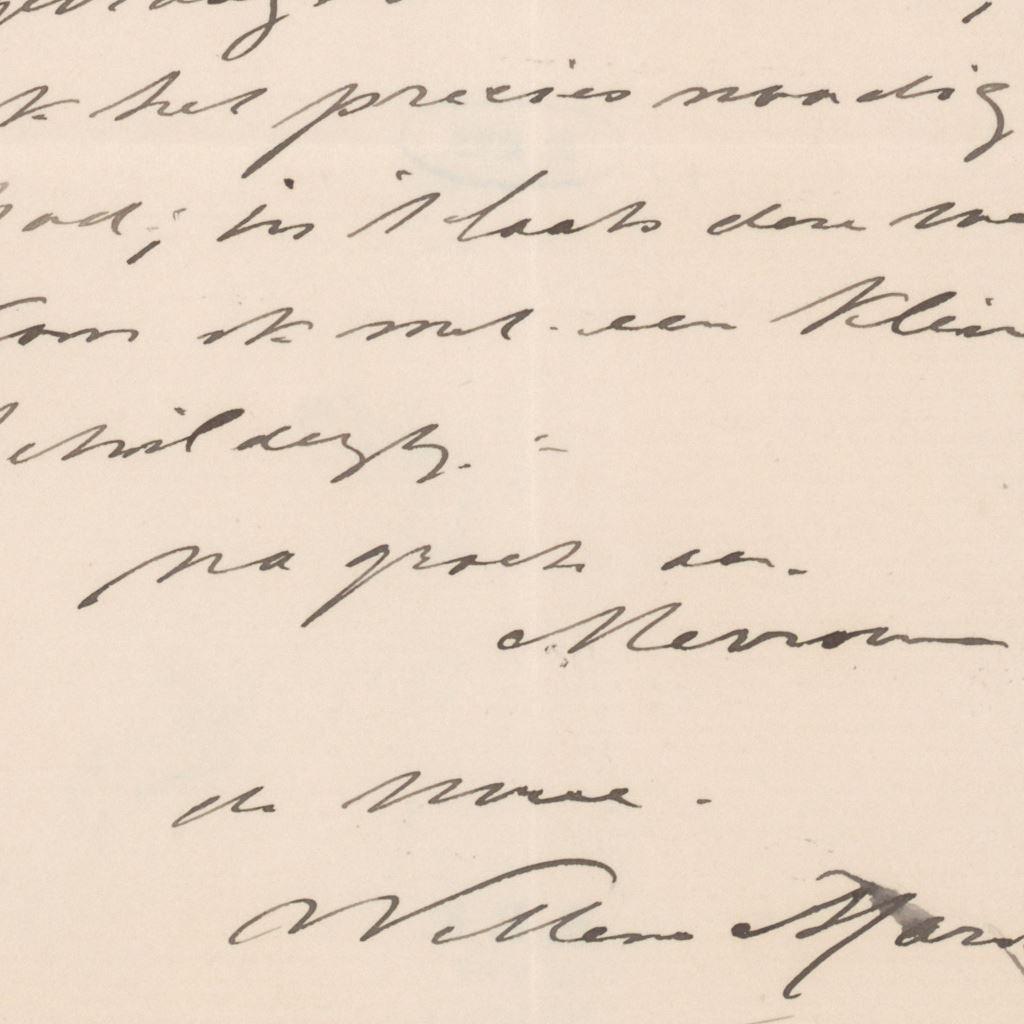 ik het precies noodig
had; in 't laatst dezer we
kom ik met een klein
schilderijtje.
na groete aan
Mevrouw
de Uwe.
Willem Maris